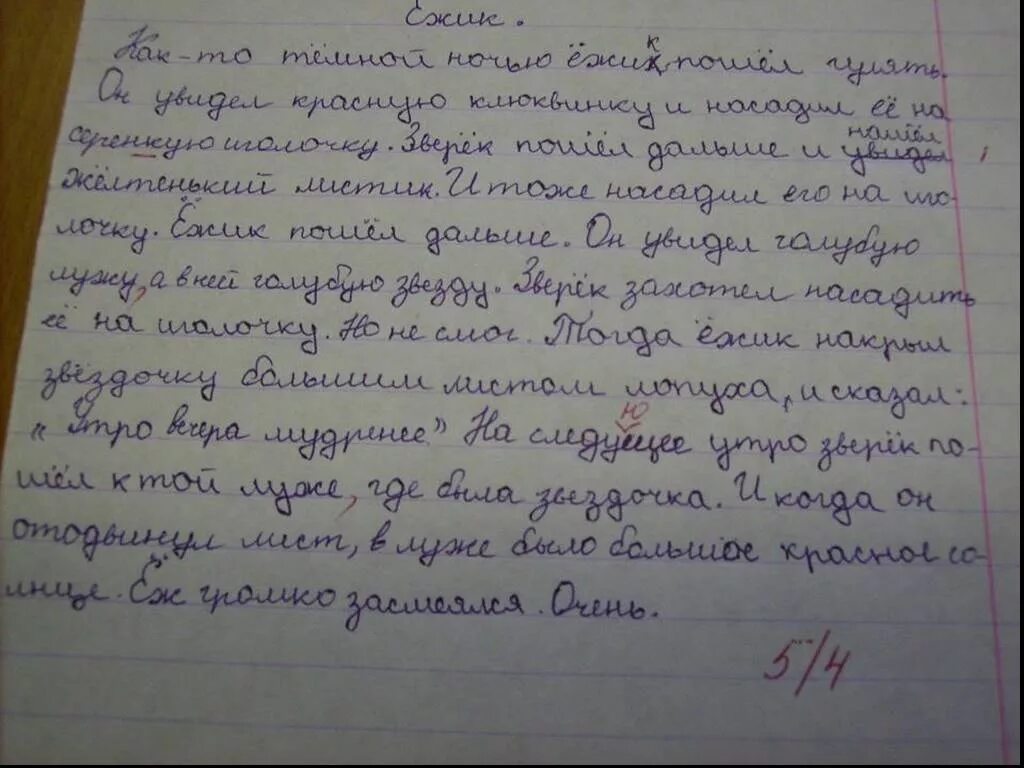 Ёжик.
Как-то тёмной ночью ёжик пошёл гулять.
Он увидел красную клюквинку и насадил её на
нашёл
серенкую иголочку. Зверёк пошёл дальше и увидел
жёлтенький листик. И тоже насадил его на иго-
лочку. Ёжик пошёл дальше. Он увидел голубую
лужу, а в ней голубую звезду. Зверёк захотел насадить
её на иголочку. Но не смог. Тогда ёжик накрыл
звёздочку большим листом лопуха, и сказал:
ю
"Утро вечера мудренее." На следущее утро зверёк по-
шёл к той луже, где была звездочка. И когда он
отодвинул лист, в луже было большое красное со-
лнце. Ёж громко засмеялся. Очень.
5/4